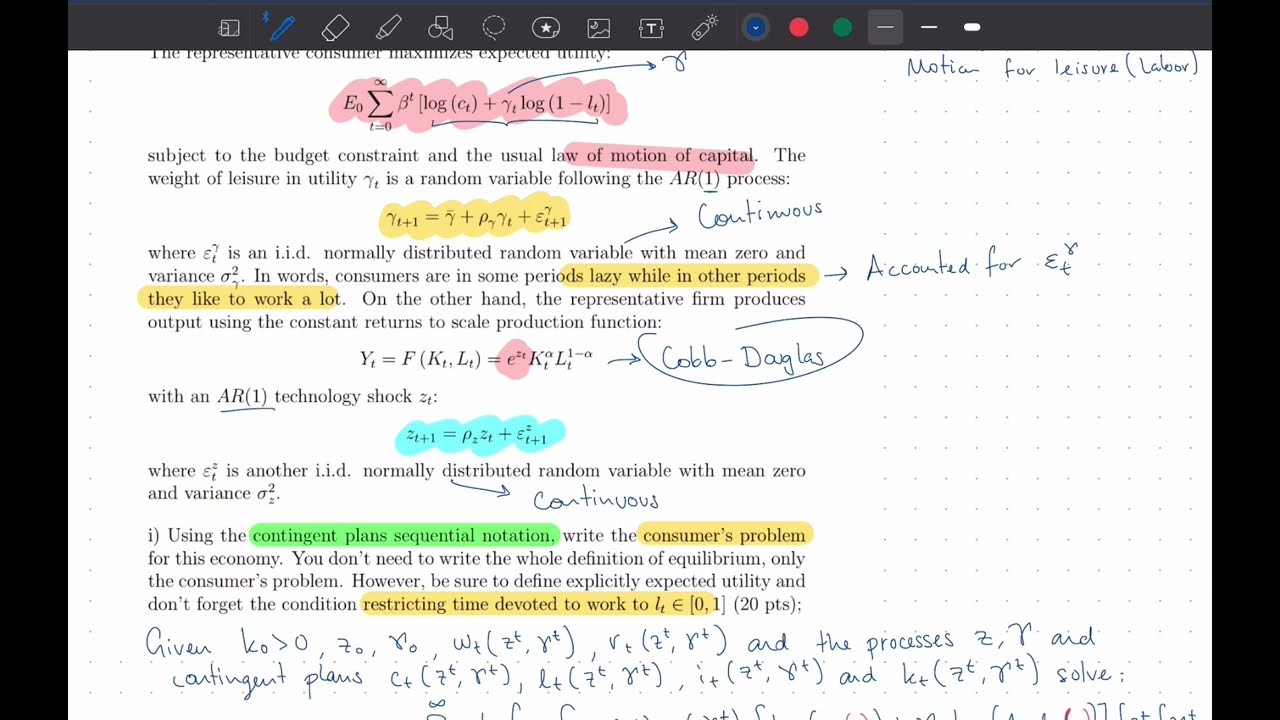 The representative consumer maximizes expected utility:
Motion for leisure (Labor)
γ
E₀ ∑_{t=0}^{∞} βᵗ [log (cₜ) + γₜ log (1 − lₜ)]
subject to the budget constraint and the usual law of motion of capital. The
weight of leisure in utility γₜ is a random variable following the AR(1) process:
γₜ₊₁ = γ̄ + ρ_γ γₜ + ε^γ_{t+1}
Continuous
where ε^γ_t is an i.i.d. normally distributed random variable with mean zero and
variance σ²_γ. In words, consumers are in some periods lazy while in other periods
they like to work a lot. On the other hand, the representative firm produces
Accounted for ε_t^γ
output using the constant returns to scale production function:
Yₜ = F (Kₜ, Lₜ) = e^{zₜ} Kₜ^α Lₜ^{1−α}
Cobb-Douglas
with an AR(1) technology shock zₜ:
zₜ₊₁ = ρ_z zₜ + ε^z_{t+1}
where ε^z_t is another i.i.d. normally distributed random variable with mean zero
and variance σ²_z.
Continuous
i) Using the contingent plans sequential notation, write the consumer's problem
for this economy. You don't need to write the whole definition of equilibrium, only
the consumer's problem. However, be sure to define explicitly expected utility and
don't forget the condition restricting time devoted to work to lₜ ∈ [0, 1] (20 pts);
Given k₀>0, z₀, γ₀, wₜ(zᵗ, γᵗ), rₜ(zᵗ, γᵗ) and the processes z, γ and
contingent plans cₜ(zᵗ, γᵗ), lₜ(zᵗ, γᵗ), iₜ(zᵗ, γᵗ) and kₜ(zᵗ, γᵗ) solve:
∞